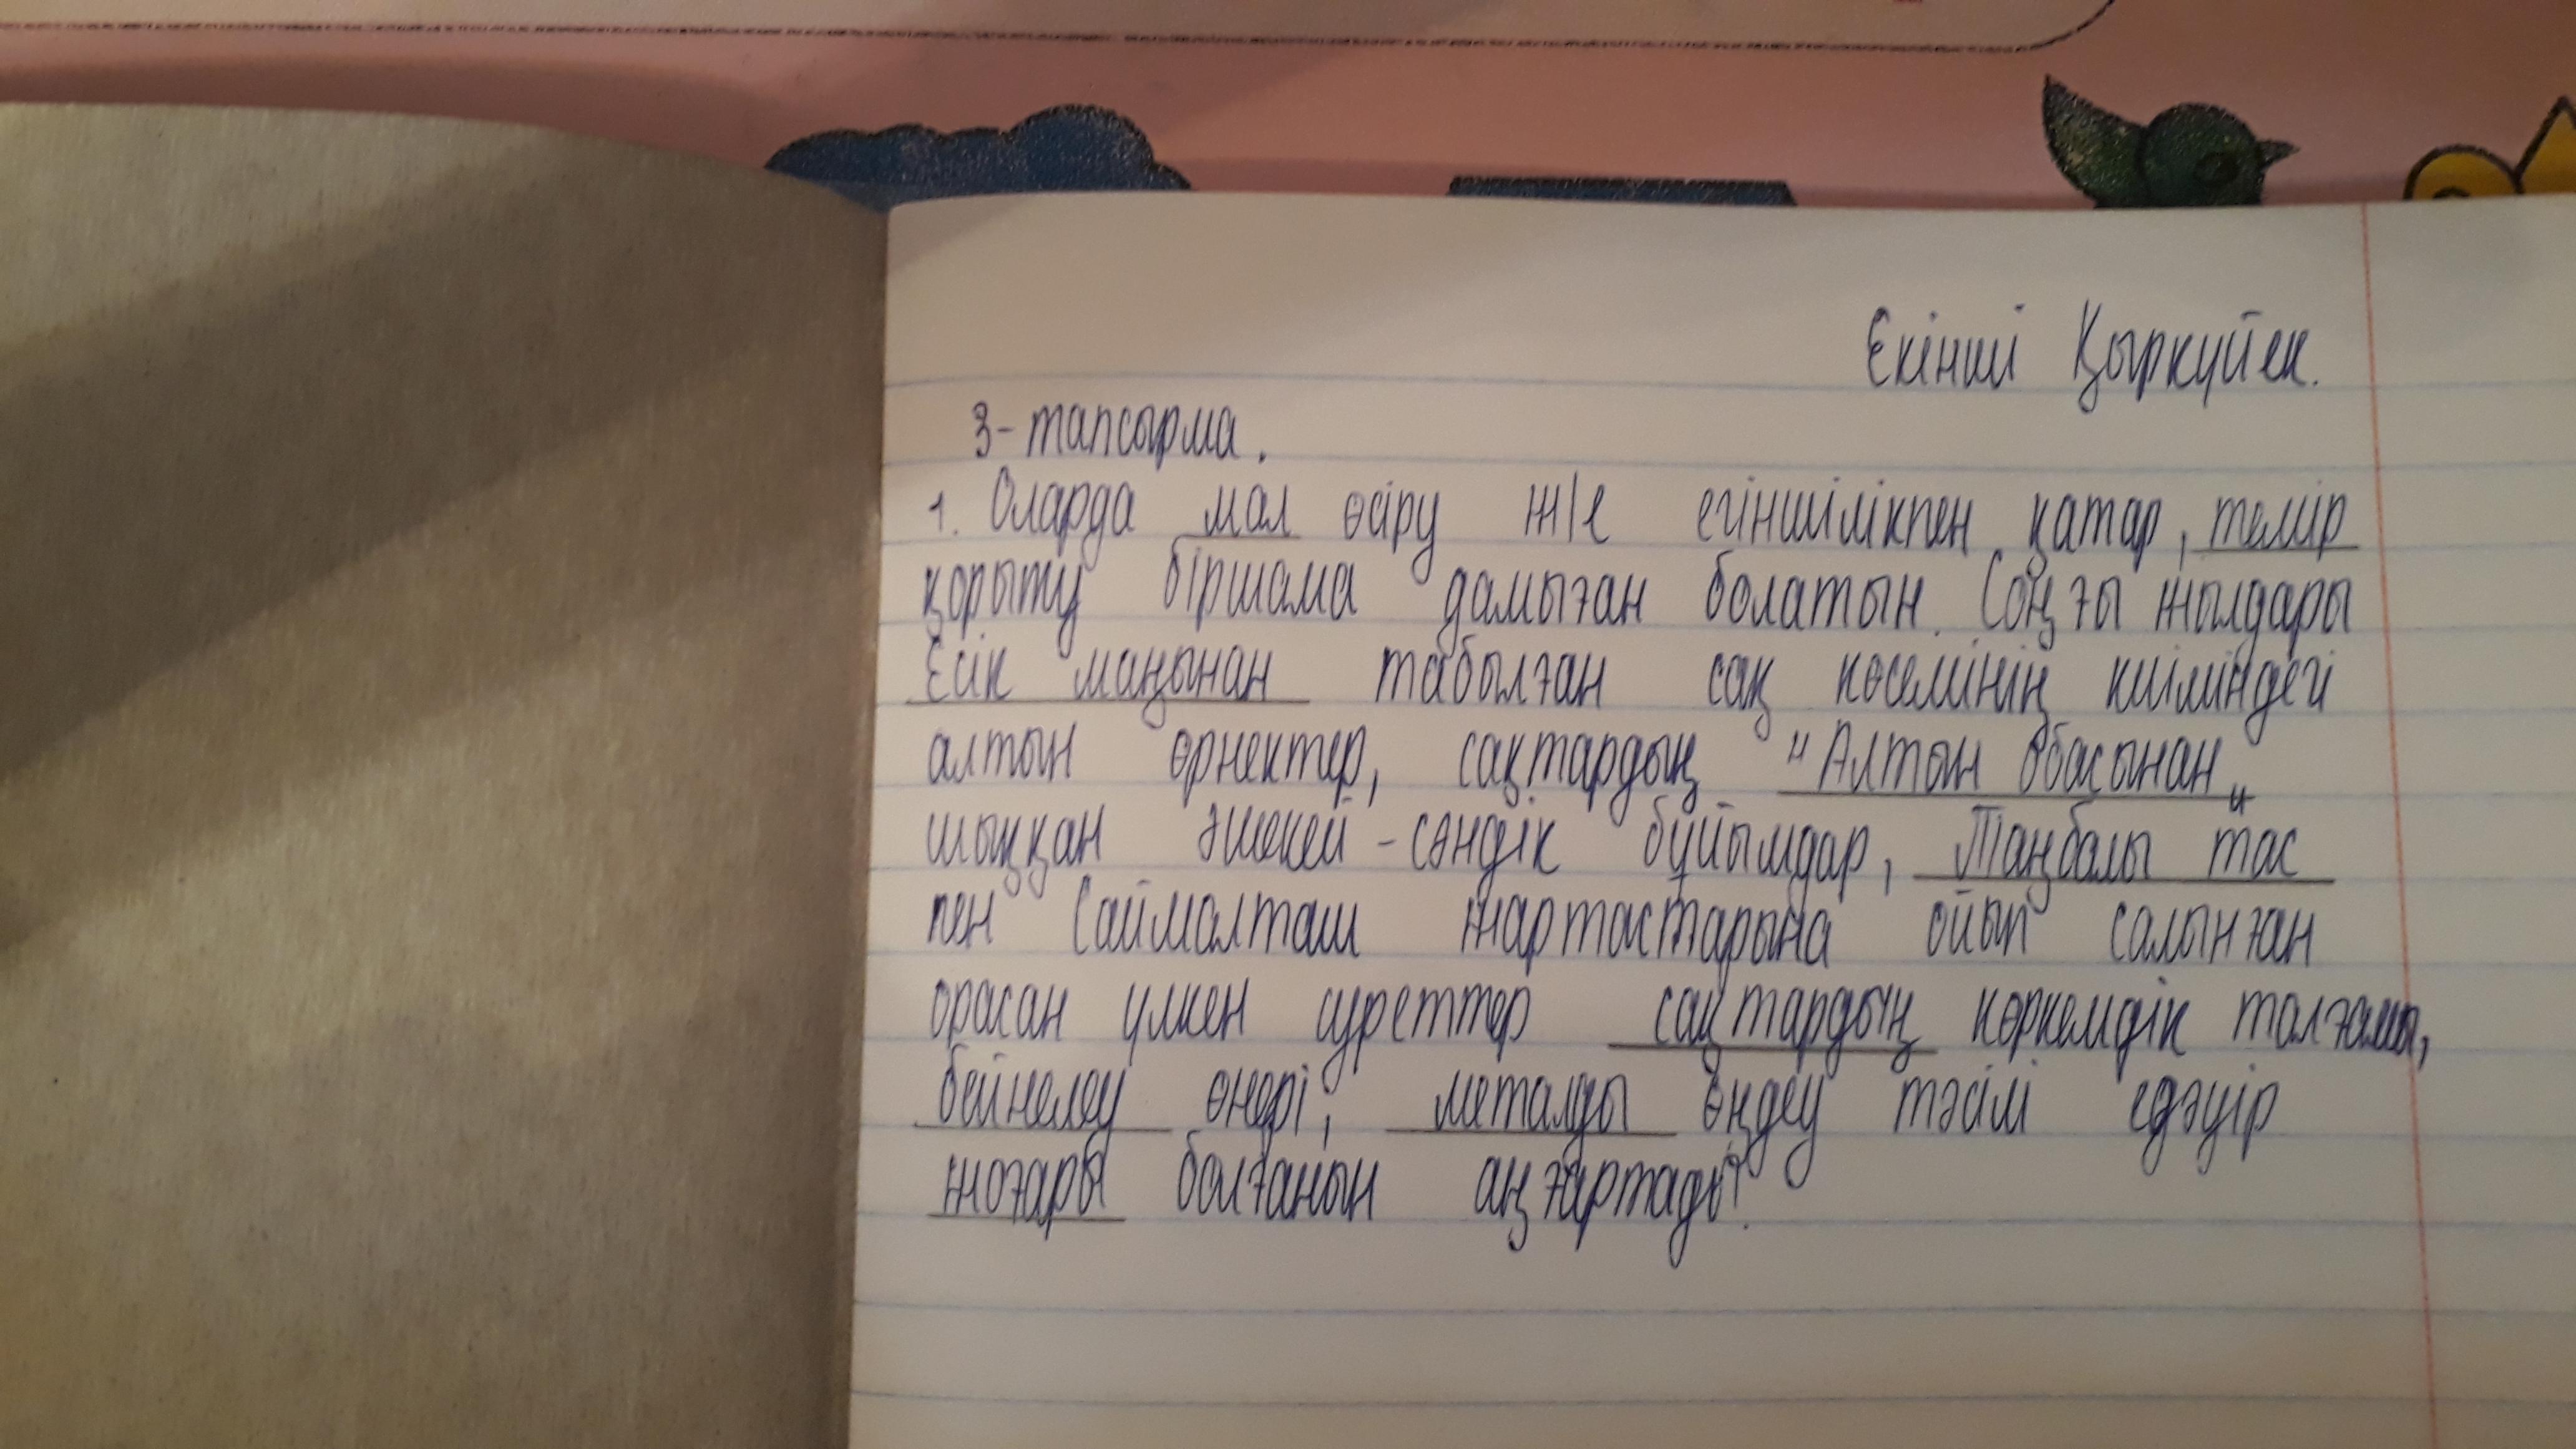 Екінші Қыркүйек.
3-тапсырма.
1. Оларда мал өсіру ж/е егіншілікпен қатар, темір
қорыту біршама дамыған болатын. Соңғы жылдары
Есік маңынан табылған сақ көсемінің киіміндегі
алтын өрнектер, сақтардың "Алтын обасынан„
шыққан әшекей-сәндік бұйымдар, Таңбалы тас
пен Саймалташ жартастарына ойып салынған
орасан үлкен суреттер сақтардың көркемдік талғамы,
бейнелеу өнері, металды өңдеу тәсілі едәуір
жоғары болғанын аңғартады.